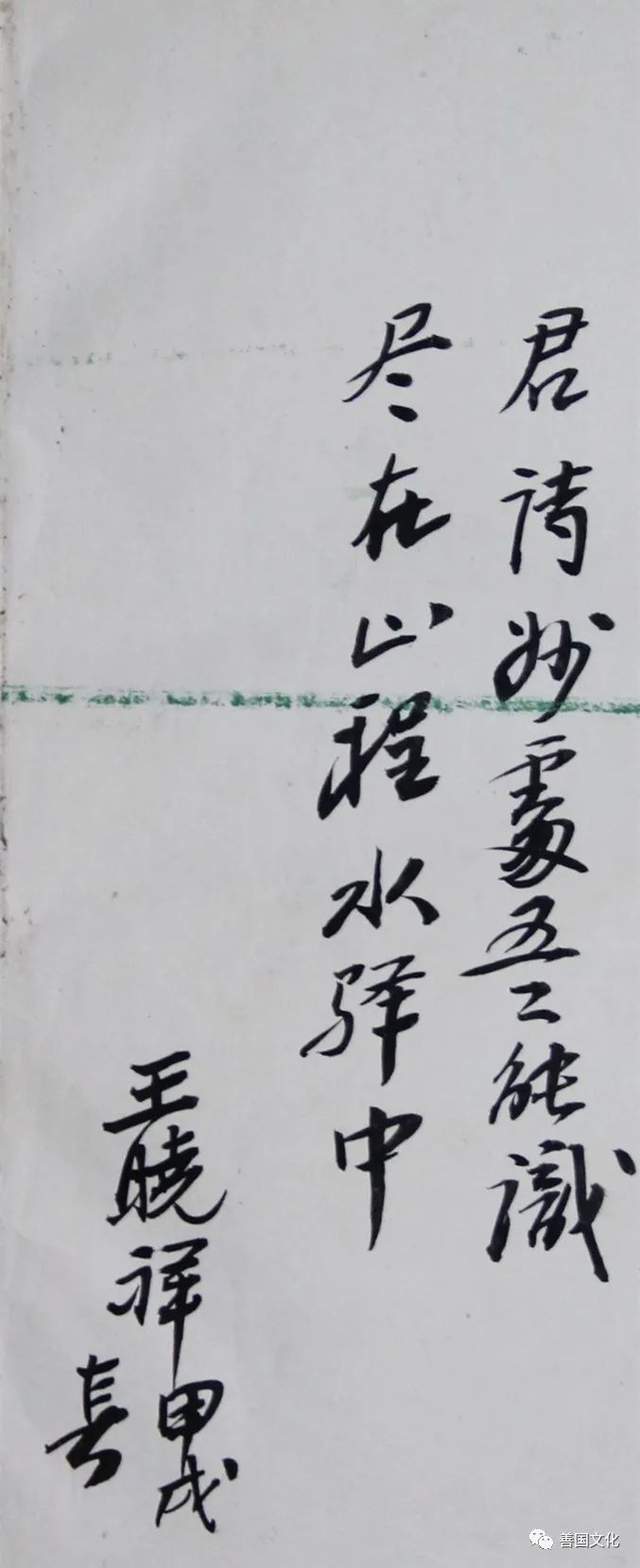 君诗妙處吾能識
尽在山程水驿中
王曉祥甲戌
善国文化